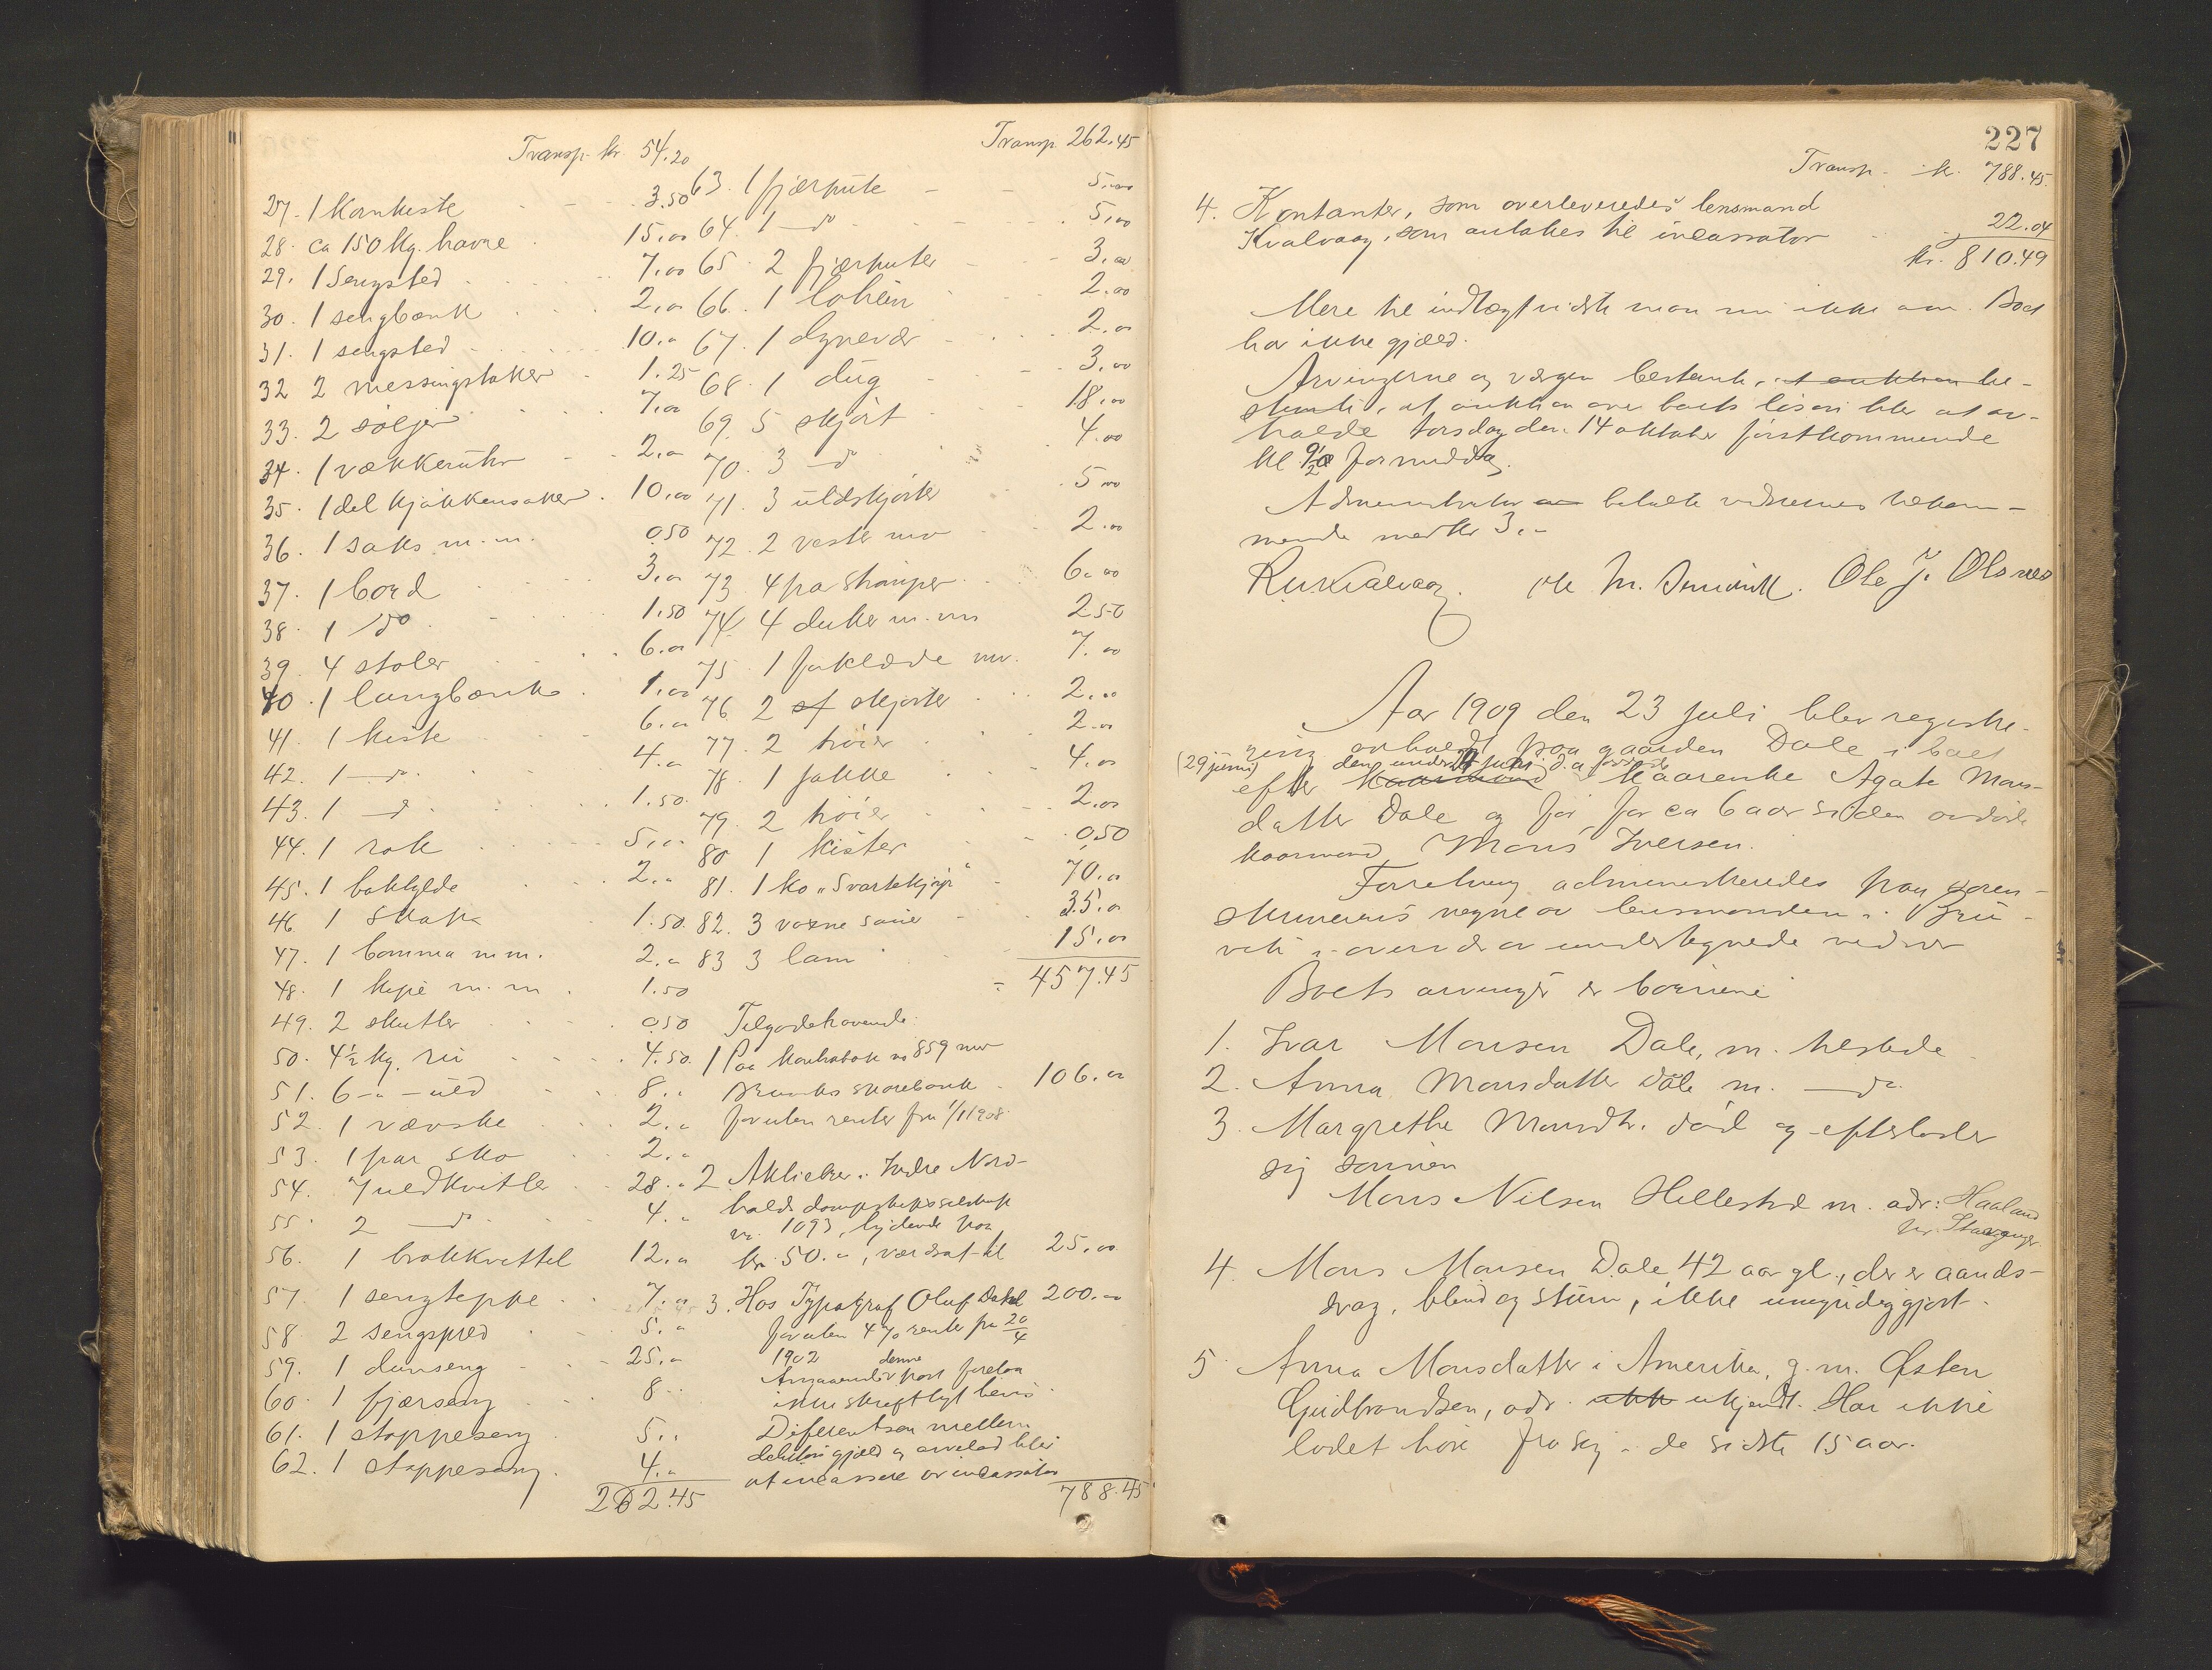 Transp. kr. 54.20
27. 1 Kornkiste 3.50
28. ca 150 kg. havre 15.00
29. 1 Sengsted 7.00
30. 1 sengbænk 2.00
31. 1 sengsted 10.00
32 2 messingstaker 1.25
33. 2 søljer 7.00
34. 1 vækkeruhr 2.00
35. 1 del kjøkkensaker 10.00
36. 1 saks m.m. 0.50
37. 1 bord 3.00
38. 1 do 1.50
39. 4 stoler 6.00
40. 1 langbænk 1.00
41. 1 kiste 6.00
42. 1 do 4.00
43. 1 do 1.50
44. 1 rok 5.00
45. 1 bokhylde 2.00
46. 1 Skap 1.50
47. 1 bomma m.m. 2.00
48. 1 kipe m.m. 1.50
49. 2 skutler 0.50
50. 4½ kg. 4.50
51. 6 - " - uld 8.00
52. 1 vævske 2.00
53. 1 par sko 2.00
54. 7 uldkvitler 28.00
55. 2 do 4.00
56. 1 brokkvittel 12.00
57 1 sengteppe 7.00
58 2 sengspred 5.00
59. 1 dunseng 25.00
60. 1 fjærseng 8.00
61. 1 stoppeseng 5.00
62. 1 stoppeseng 4.00
262.45
Transp. 262.45
63. 1 fjærpute 5.00
64. 1 do 5.00
65. 2 fjærputer 3.00
66. 1 2.00
67. 1 dynevær 2.00
68. 1 dug 3.00
69. 5 skjørt 18.00
70. 3 do 4.00
71. 3 uldskjorter 5.00
72. 2 vester mv 2.00
73 4 par strømper 6.00
74 4 duker m.m 2.50
75 1 forklæde mv. 7.00
76 2 skjorter 2.00
77. 2 trøier 2.00
78. 1 jakke 4.00
79. 2 trøier 2.00
80 1 kister 0.50
81. 1 ko 70.00
82. 3 voxne sauer 35.00
83 3 lam 15.00
= 457.45
Tilgodehavende:
1 Paa kontrabok no 859 mv
sparebank 106.00
foruten renter fra 1/1 1908.
2 Aktiebrev i Indre Nord-
hords dampskipsselskap
nr. 1093, lydende paa
kr. 50.00, værdsat til 25.00
3. Hos Typograf Oluf Dahl 200.00
foruten 4% rente fra 20/4
1902
Angaaende denne post forelaa
ikke skriftligt bevis.
Diferentsen mellem
debitors gjæld og arvelod blir
at incassere av incassator
788.45
227
Transp. kr. 788.45.
4. Kontanter, som overleveredes lensmand
Kvalvaag, som antokes til incassator 22.04
kr. 810.49
Mere til indtægt vidste man nu ikke om. Boet
har ikke gjæld.
Arvingerne og værgen bestemte, at auktion be-
stemte, at auktion over boets løsøre blir at av-
holde torsdag den 14 oktober førstkommende
kl. 9½ formiddag.
Administrator betalte vidnernes tilkom-
mende med kr 3.-
Kvalvaag. Ole M. Ole J. Olsnes
Aar 1909 den 23 juli blev registre-
ring avholdt paa gaarden Dale i boet
(29 juni) den under juni d.a. avdøde
efter kaarmand kaarenke Agate Mons-
datter Dale og før for ca 6 aar siden avdøde
kaarmand Mons Iversen.
Forretning administreredes paa soren-
skriverens vegne av lensmanden i Bru-
vik i overvær av undertegnede vidner
Boets arvinger er børnene
1. Ivar Monsen Dale, m. tilstede
2. Anna Monsdatter Dale m. do.
3. Margrethe Monsdtr. død og efterlader
sig sønnen
Mons Nilsen Hellestad m. adr: Haaland
pr. Stavanger.
4. Mons Monsen Dale 42 aar gl., der er aands-
svag, blind og stum, ikke umyndiggjort.
5 Anna Monsdatter i Amerika, g.m. Østen
Gudbrandsen, adr. ikke ukjendt. Har ikke
ladet høre fra sig i de sidste 15 aar.